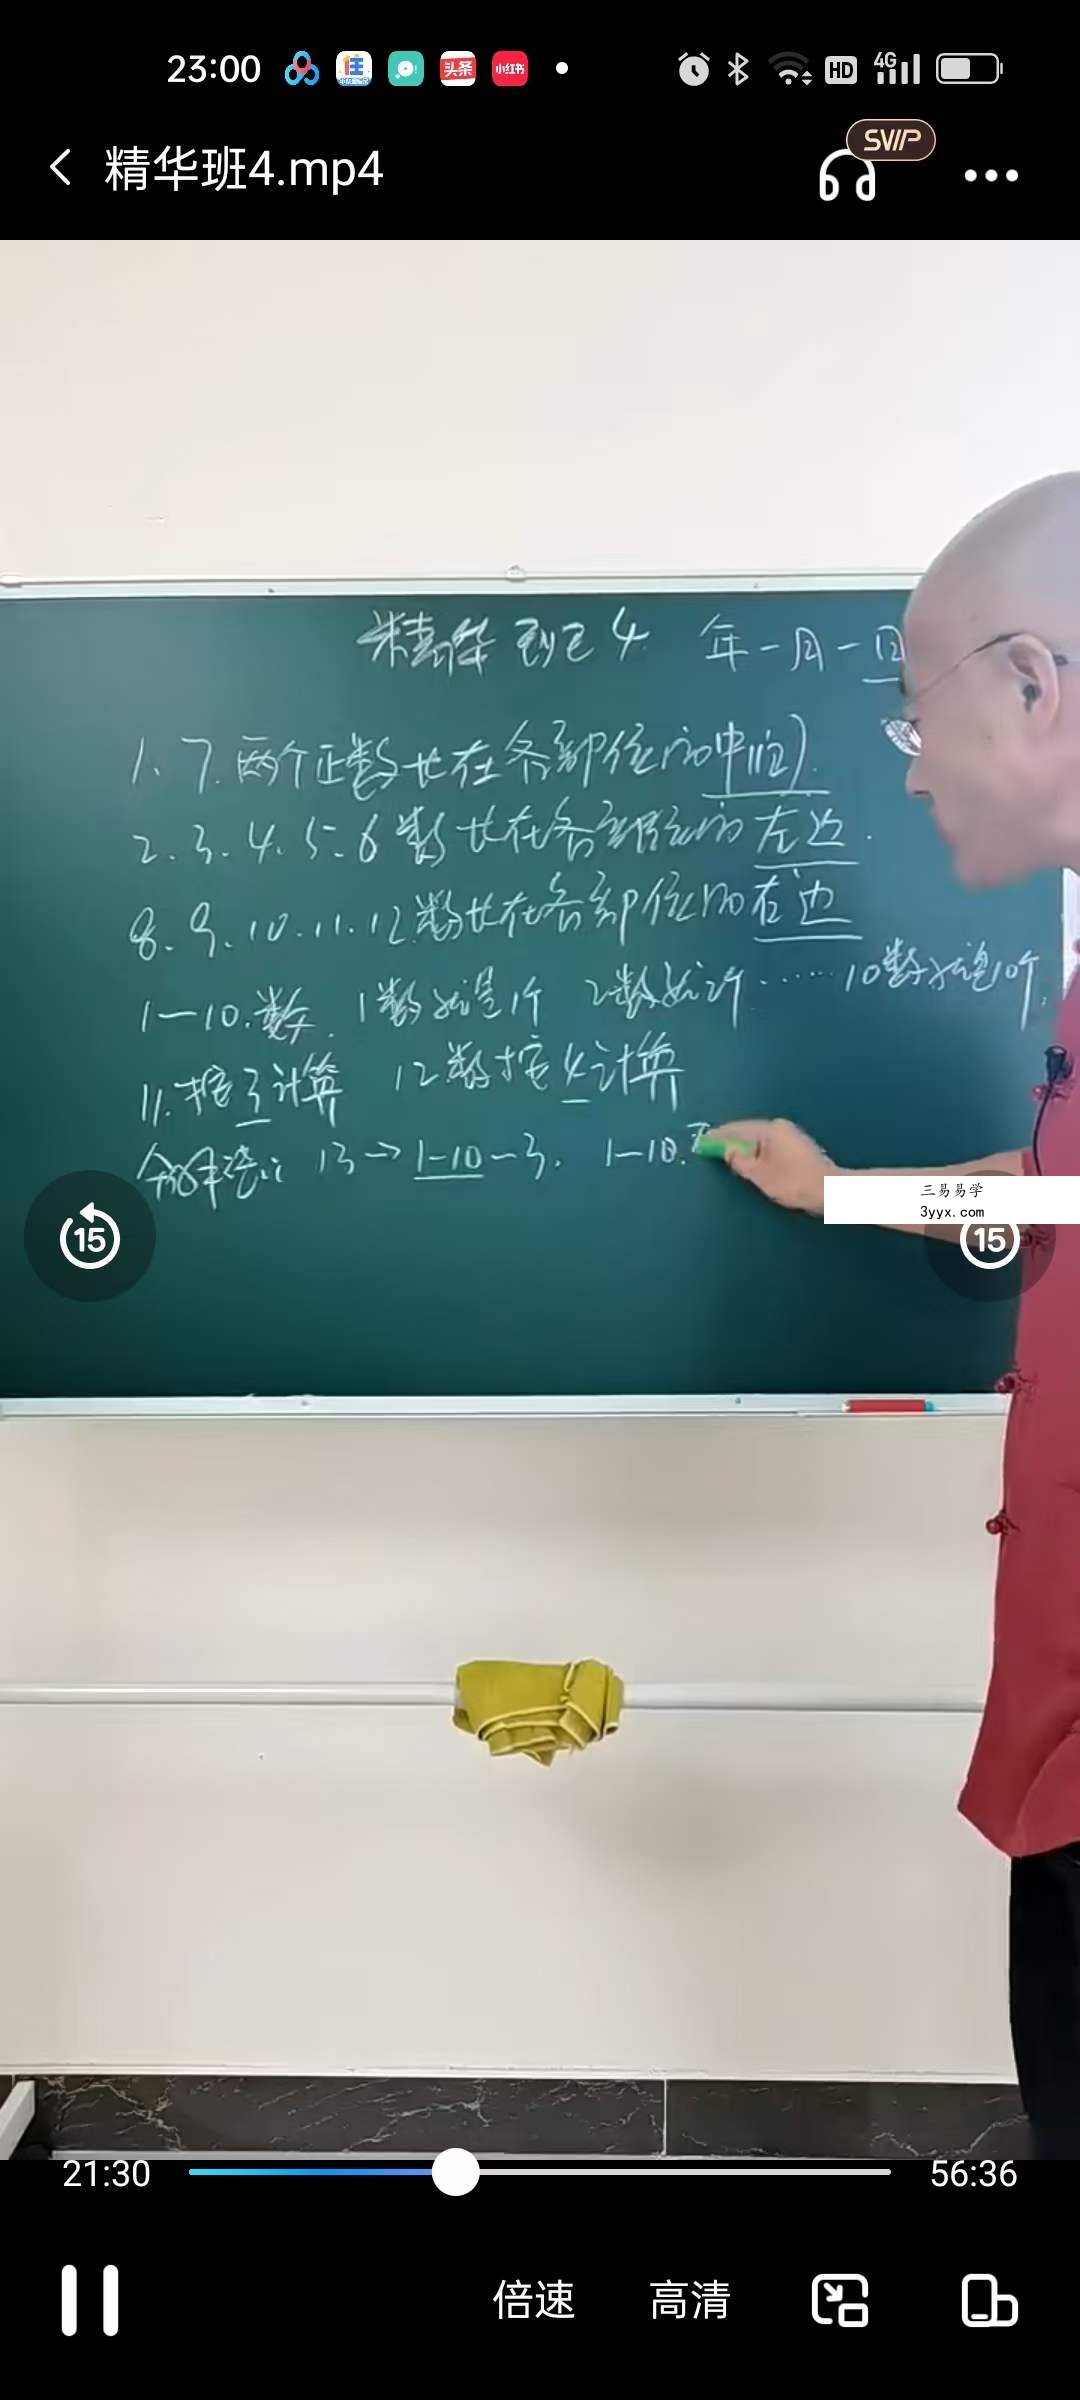 23:00
头条
小红书
HD
4G
精华班4.mp4
SVIP
精华班4 年一月一日
1、7.两个正数长在各部位的中间.
2、3、4、5、6数长在各部位的左边.
8、9、10、11、12数长在各部位的右边
1—10.数. 1数就是1个 2数就2个……10数就是10个.
11.按3计算 12数按4计算
13→1-10-3. 1-10.
15
15
三易易学
3yyx.com
21:30
56:36
倍速
高清